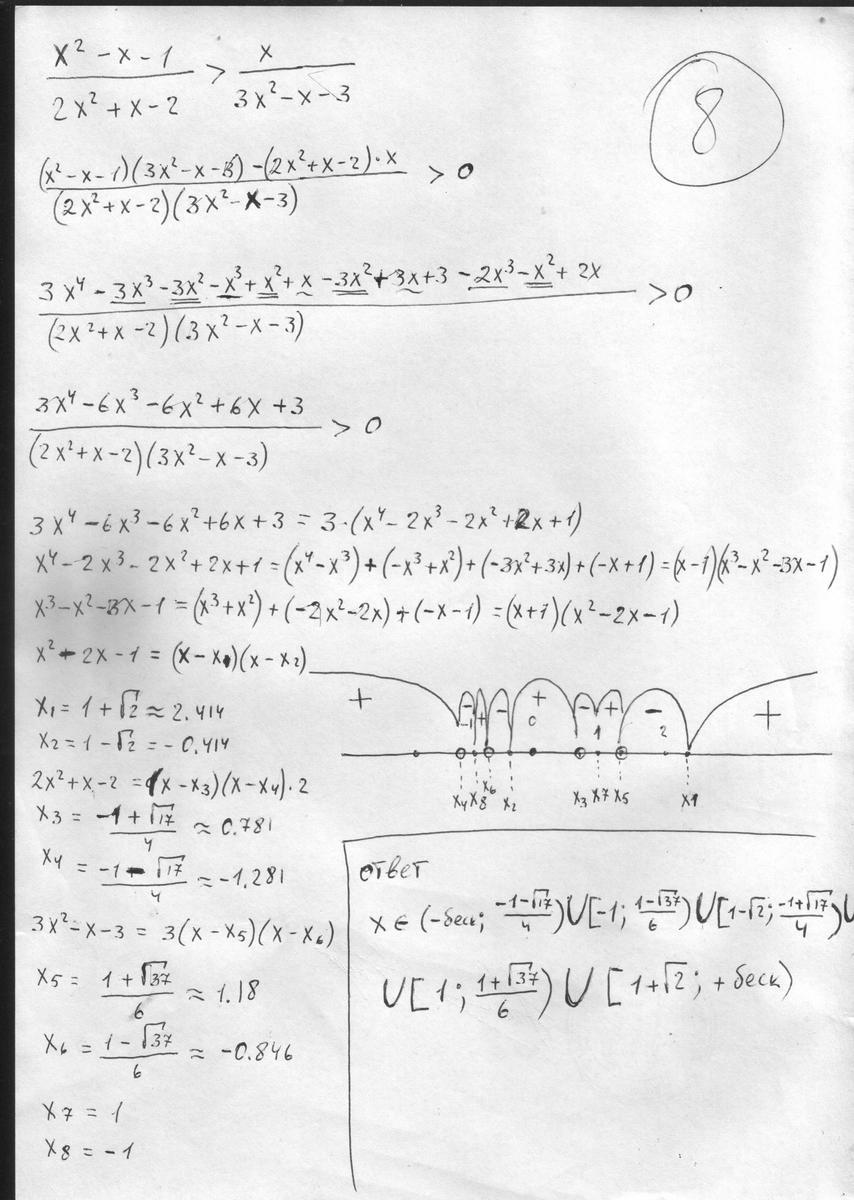 8
x² - x - 1 / 2x² + x - 2 > x / 3x² - x - 3
(x² - x - 1)(3x² - x - 3) - (2x² + x - 2)·x / (2x² + x - 2)(3x² - x - 3) > 0
3x⁴ - 3x³ - 3x² - x³ + x² + x - 3x² + 3x + 3 - 2x³ - x² + 2x / (2x² + x - 2)(3x² - x - 3) > 0
3x⁴ - 6x³ - 6x² + 6x + 3 / (2x² + x - 2)(3x² - x - 3) > 0
3x⁴ - 6x³ - 6x² + 6x + 3 = 3·(x⁴ - 2x³ - 2x² + 2x + 1)
x⁴ - 2x³ - 2x² + 2x + 1 = (x⁴ - x³) + (-x³ + x²) + (-3x² + 3x) + (-x + 1) = (x - 1)(x³ - x² - 3x - 1)
x³ - x² - 3x - 1 = (x³ + x²) + (-2x² - 2x) + (-x - 1) = (x + 1)(x² - 2x - 1)
x² - 2x - 1 = (x - x₁)(x - x₂)
x₁ = 1 + √2 ≈ 2.414
x₂ = 1 - √2 = -0.414
2x² + x - 2 = (x - x₃)(x - x₄)·2
x₃ = -1 + √17 / 4 ≈ 0.781
x₄ = -1 - √17 / 4 ≈ -1.281
3x² - x - 3 = 3(x - x₅)(x - x₆)
x₅ = 1 + √37 / 6 ≈ 1.18
x₆ = 1 - √37 / 6 ≈ -0.846
x₇ = 1
x₈ = -1
+ - + - + - + - +
-1 0 1 2
x₄ x₈ x₆ x₂ x₃ x₇ x₅ x₁
ответ
x ∈ (-беск; -1-√17 / 4) ∪ [-1; 1-√37 / 6) ∪ [1-√2; -1+√17 / 4) ∪
∪ [1; 1+√37 / 6) ∪ [1+√2; +беск)